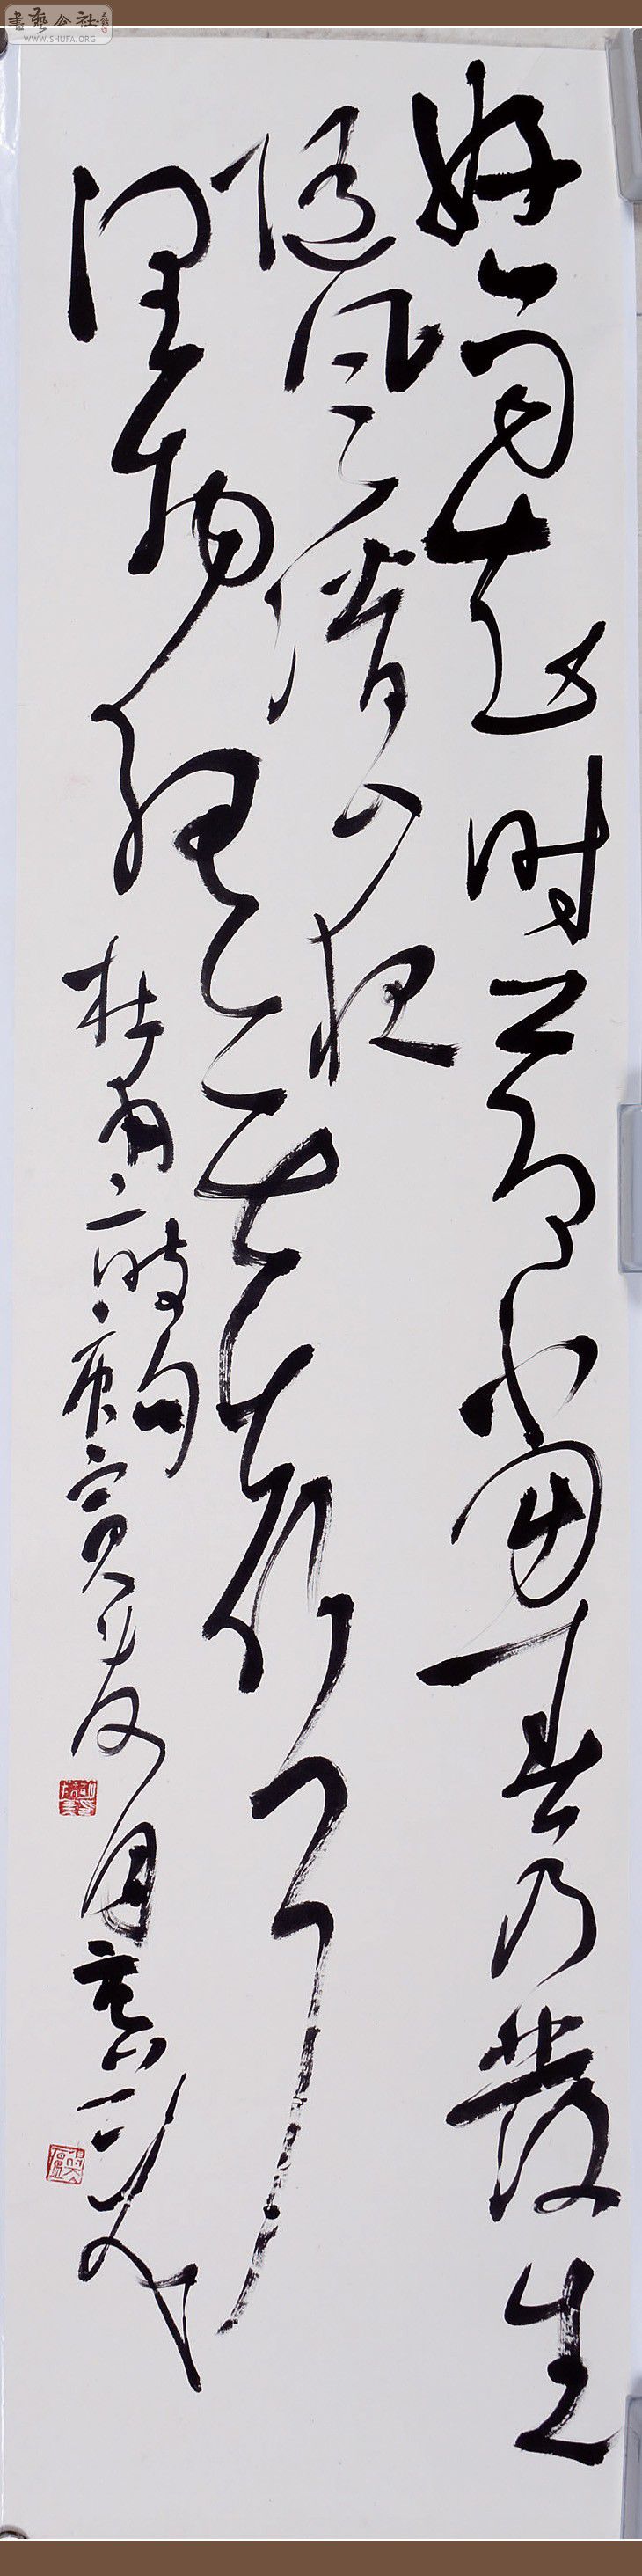 書藝公社
WWW.SHUFA.ORG
好雨知时節当春乃發生
随风潜入夜
润物细无声
杜甫
诗句
庚寅